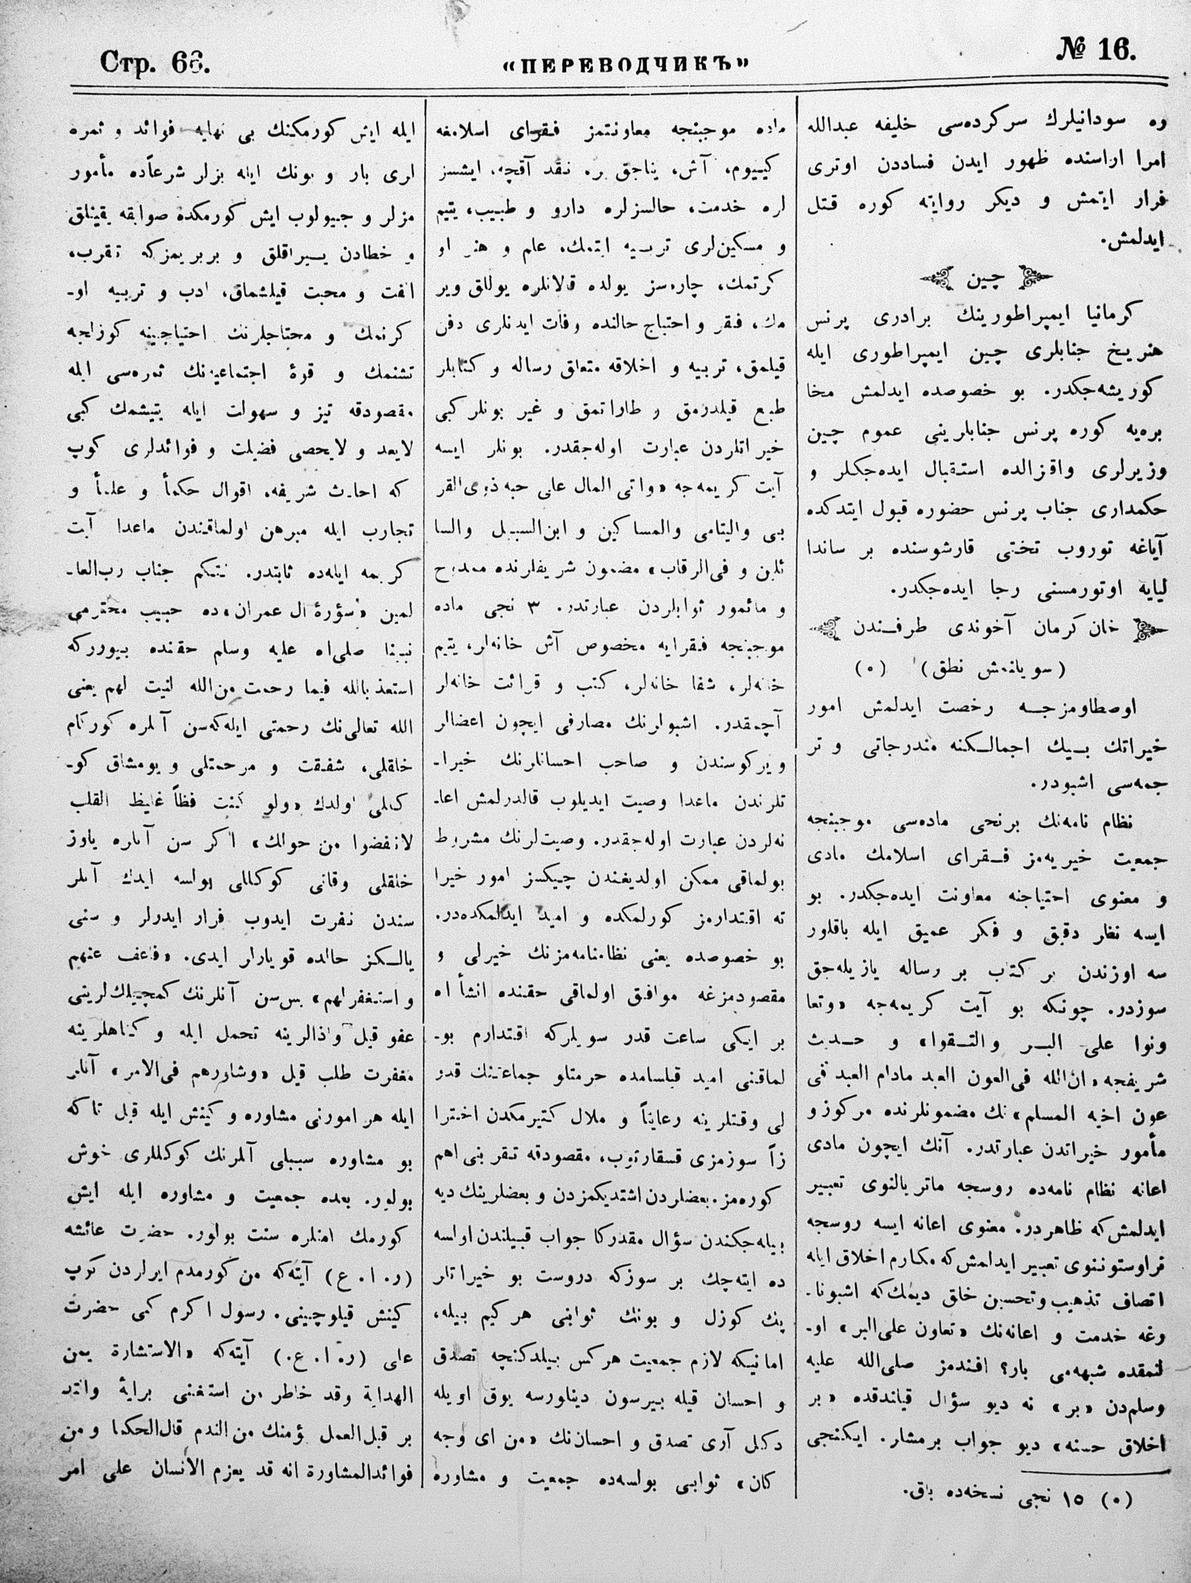 Стр. 66.
«ПЕРЕВОДЧИКЪ»
№ 16.
وه سودانیلرك سركرده‌سی خلیفه عبدالله
امرا اراسنده ظهور ایدن فساددن اوتری
فرار ایتمش و دیكر روایته كوره قتل
ایدلمش.
چین
كرمانیا ایمپراطورینك برادری پرنس
هنریخ جنابلری چین ایمپراطوری ایله
كوریشه‌جكدر. بو خصوصده ایدلمش مخا
بره‌یه كوره پرنس جنابلرینی عموم چین
وزیرلری واقزالده استقبال ایده‌جكلر و
حكمداری جناب پرنس حضوره قبول ایتدكده
آیاغه توروب تختی قارشوسنده بر ساندا
لیایه اوتورمسنی رجا ایده‌جكدر.
خان كرمان آخوندی طرفندن
(سویلنمش نطق) (٥)
اوصطاومزجه رخصت ایدلمش امور
خیراتك بیك اجمالكنه مندرجاتی و تر
جمه‌سی اشبودر.
نظام نامه‌نك برنجی ماده‌سی موجبنجه
جمعیت خیریه‌مز فقرای اسلامك مادی
و معنوی احتیاجنه معاونت ایده‌جكدر. بو
ایسه نظر دقیق و فكر عمیق ایله باقلور
سه اوزندن بر كتاب بر رساله یازیله‌جق
سوزدر. چونكه بو آیت كریمه‌جه «وتعا
ونوا علی البر والتقوا» و حدیث
شریفجه «ان‌الله فی‌العون العبد مادام العبد فی
عون اخیه المسلم» نك مضمونلرنده مركوز و
مأمور خیراتدن عبارتدر. آنك ایچون مادی
اعانه نظام نامه‌ده روسجه ماتریالنوی تعبیر
ایدلمش‌كه ظاهردر. معنوی اعانه ایسه روسجه
قراوستوننوی تعبیر ایدلمش‌كه مكارم اخلاق ایله
اتصاف تذهیب وتحسین خلق دیمك‌كه اشبونا-
وغه خدمت و اعانه‌نك «تعاون علی‌البر» او-
لنمقده شبهه‌می بار؟ افندمز صلی‌الله علیه
وسلم‌دن «بر» نه دیو سؤال قیلندقده «بر
اخلاق حسنه» دیو جواب برمشلر. ایكنجی
(٥) ١٥ نجی نسخه‌ده باق.
ماده موجبنجه معاونتمز فقرای اسلامغه
كییوم، آش، یناجق یره نقد آقچه، ایشسز
لره خدمت، حالسزلره دارو و طبیب، یتیم
و مسكین‌لری تربیه ایتمك، علم و هنر او
كرتمك، چاره‌سز یولده قالانلره یوللق ویر
مك، فقر و احتیاج حالنده وفات ایدنلری دفن
قیلمق، تربیه و اخلاقه متعلق رساله و كتابلر
طبع قیلدرمق و طاراتمق و غیر بونلر كبی
خیراتلردن عبارت اوله‌جقدر. بونلر ایسه
آیت كریمه‌جه «واتی المال علی حبه ذوی‌القر
بی والیتامی والمساكین و ابن‌السبیل والسا
ئلین و فی‌الرقاب» مضمون شریفلرنده ممدوح
و مائمور ثوابلردن عبارتدر. ٣ نجی ماده
موجبنجه فقرایه مخصوص آش خانه‌لر، یتیم
خانه‌لر، شفا خانه‌لر، كتب و قرائت خانه‌لر
آچمقدر. اشبولرنك مصارفی ایچون اعضالر
ویركوسندن و صاحب احسانلرنك خیرا-
تلرندن ماعدا وصیت ایدیلوب قالدرلمش اعا-
نه‌لردن عبارت اوله‌جقدر. وصیت‌لرنك مشروط
بولماقی ممكن اولدیغندن چیكسز امور خیرا
ته اقتدارمز كورلمكده و امید ایدلمكده‌در.
بو خصوصده یعنی نظامنامه‌مزنك خیرلی و
مقصودمزغه موافق اولماقی حقنده انشأ الله
بر ایكی ساعت قدر سویلركه اقتدارم بو-
لماقنی امید قیلسامده حرمتلو جماعتنك قدر
لی وقتلرینه رعایتاً و ملال كتیرمكدن احترا
زاً سوزمزی قسقارتوب، مقصودقه تقربنی اهم
كوره‌مز. بعضلردن اشتدیكمزدن و بعضلرینك دیه
بیله‌جكندن سؤال مقدركا جواب قبیلندن اولسه
ده ایته‌چك بر سوزكه دروست بو خیراتلر
پك كوزل و بونك ثوابنی هركیم بیله،
امانیكه لازم جمعیت هركس بیلدكنچه تصدق
و احسان قیله بیرسون دینلورسه یوق اویله
دكل آری تصدق و احسان‌نك «من ای وجه
كان» ثوابی بولسه‌ده جمعیت و مشاوره
ایله ایش كورمكنك بی نهایه فوائد و ثمره
لری بار و بونك ایله بزلر شرعاًده مأمور
مزلر و جیولوب ایش كورمكده صوابقه یقینلق
و خطادن یراقلق و بربریمزكه تقرب،
الفت و محبت قیلشماق، ادب و تربیه او-
كرنمك و محتاجلرنك احتیاجینه كوزلجه
تشنمك و قوۀ اجتماعیه‌نك ثمره‌سی ایله
مقصودقه تیز و سهولت ایله یتیشمك كبی
لایعد و لایحصی فضیلت و فوائدلری كوپ
كه احادث شریفه، اقوال حكمأ و علمأ و
تجارب ایله مبرهن اولماقیندن ماعدا آیت
كریمه ایله‌ده ثابتدر. نتكم جناب رب‌العا-
لمین «سؤرۀ ال عمران»ده حبیب محترمی
نبینا صلی‌الله علیه وسلم حقنده بیوررکه
استعذ بالله فیما رحمت من‌الله لنیت لهم یعنی
الله تعالی‌نك رحمتی ایله‌كه‌سن آنلره كوركام
خلقلی، شفقت و مرحمتلی و یومشاق كو-
كللی اولدك «ولو كنت فظاً غلیظ القلب
لانفضوا من حولك» اكر سن آنلره یاوز
خلقلی وقاتی كوكللی بولسه ایدك آنلر
سندن نفرت ایدوب فرار ایدرلر و سنی
یالكز حالده قویارلر ایدی. «فاعف عنهم
و استغفر لهم» بس‌سن آنلرنك كمچیلك‌لرینی
عفو قیل واذالرینه تحمل ایله و كناهلرینه
مغفرت طلب قیل «وشاورهم فی‌الامر» آنلر
ایله هر امورنی مشاوره و كینش ایله قیل تا كه
بو مشاوره سببلی آنلرنك كوكللری خوش
بولور. بعده جمعیت و مشاوره ایله ایش
كورمك امتلره سنت بولور. حضرت عائشه
(ر. ا. ع) آیته‌كه من كورمدم ایرلردن كوپ
كینش قیلوچینی. رسول اكرم كبی حضرت
علی (ر. ا. ع.) آیته‌كه «الاستشارة یمن
الهدایة وقد خاطر من استغنی برایه والتد
بر قبل‌العمل یؤمنك من‌الندم قال‌الحكما و من
فوائدالمشاورة انه قد یعزم الانسان علی امر